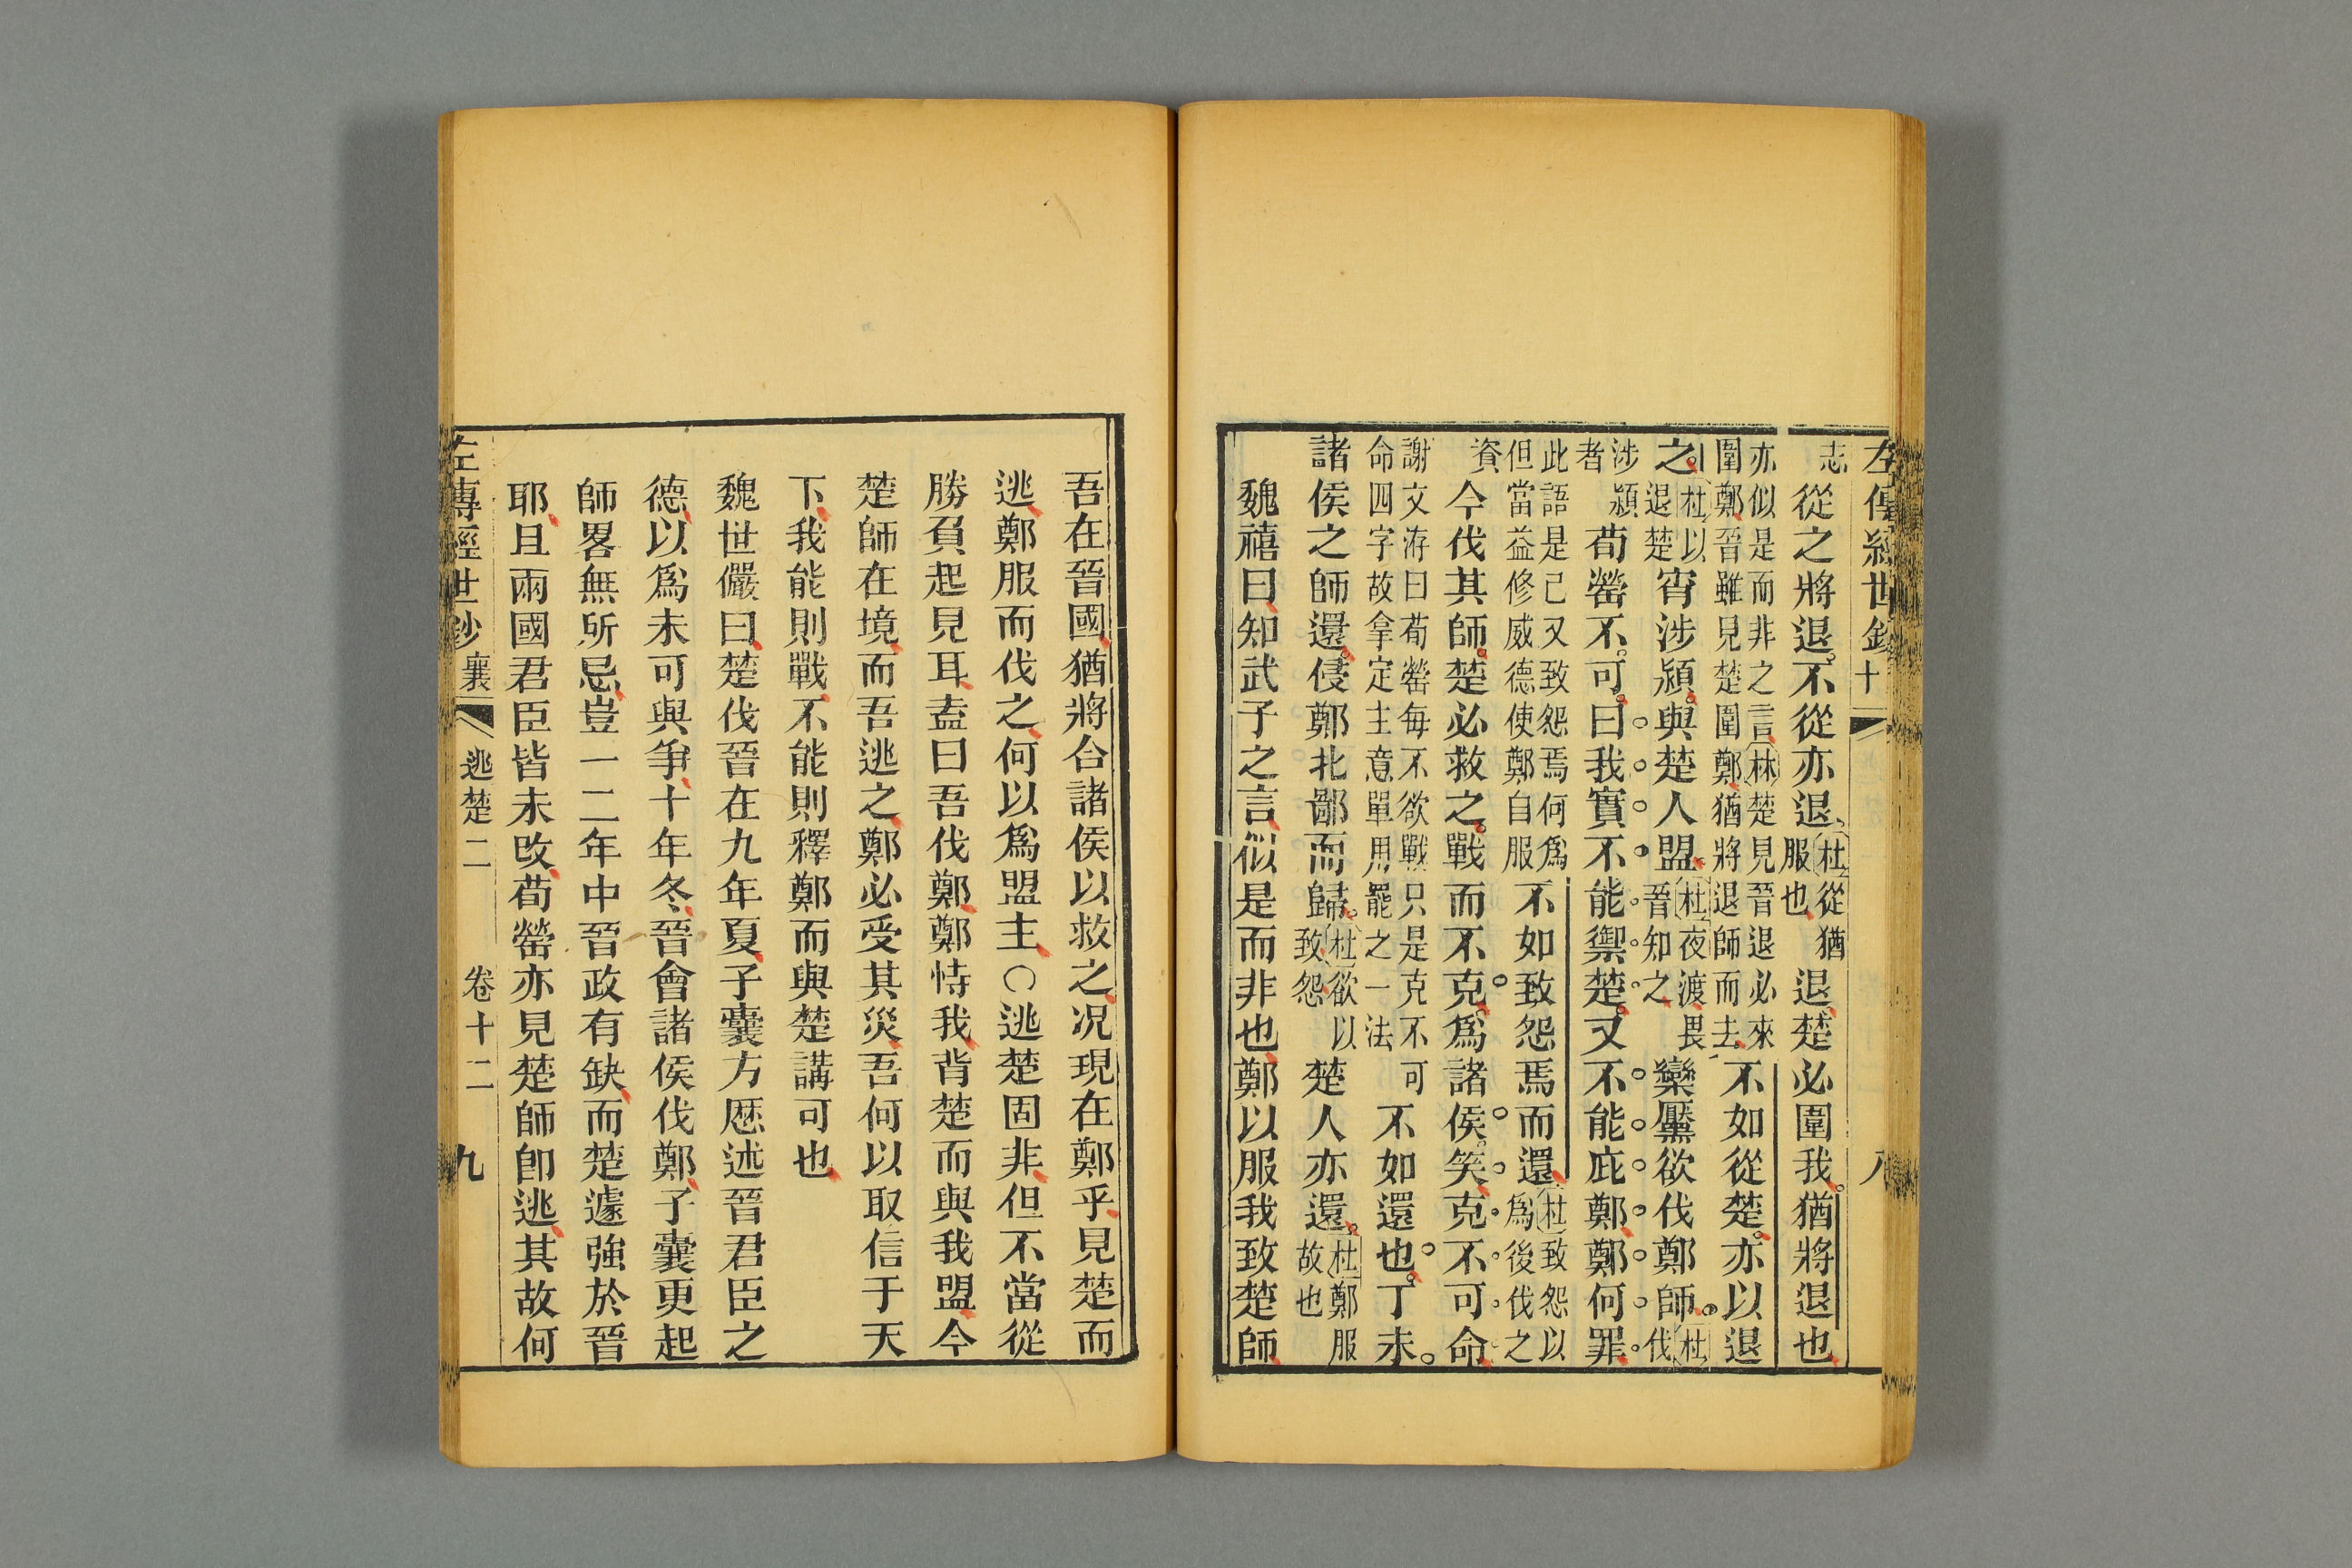 左傳經世鈔 十 八
志從之將退不從亦退杜從猶服也退楚必圍我猶將退也
亦似是而非之言林楚見晉退必來圍鄭晉雖見楚圍鄭猶將退師而去不如從楚亦以退
之杜以退楚宵涉潁與楚人盟杜夜渡畏晉知之欒黶欲伐鄭師杜伐
涉潁者荀罃不可曰我實不能禦楚又不能庇鄭鄭何罪
此語是己又致怨焉何爲但當益修威德使鄭自服不如致怨焉而還杜致怨以爲後伐之
資今伐其師楚必救之戰而不克爲諸侯笑克不可命
謝文洊曰荀罃每不欲戰只是克不可命四字故拿定主意單用罷之一法不如還也丁未
諸侯之師還侵鄭北鄙而歸杜欲以致怨楚人亦還杜鄭服故也
魏禧曰知武子之言似是而非也鄭以服我致楚師
吾在晉國猶將合諸侯以救之况現在鄭乎見楚而
逃鄭服而伐之何以爲盟主○逃楚固非但不當從
勝負起見耳盍曰吾伐鄭鄭恃我背楚而與我盟今
楚師在境而吾逃之鄭必受其災吾何以取信于天
下我能則戰不能則釋鄭而與楚講可也
魏世儼曰楚伐晉在九年夏子囊方歷述晉君臣之
德以爲未可與爭十年冬晉會諸侯伐鄭子囊更起
師畧無所忌豈一二年中晉政有缺而楚遽強於晉
耶且兩國君臣皆未改荀罃亦見楚師卽逃其故何
左傳經世鈔 襄 逃楚二 卷十二 九